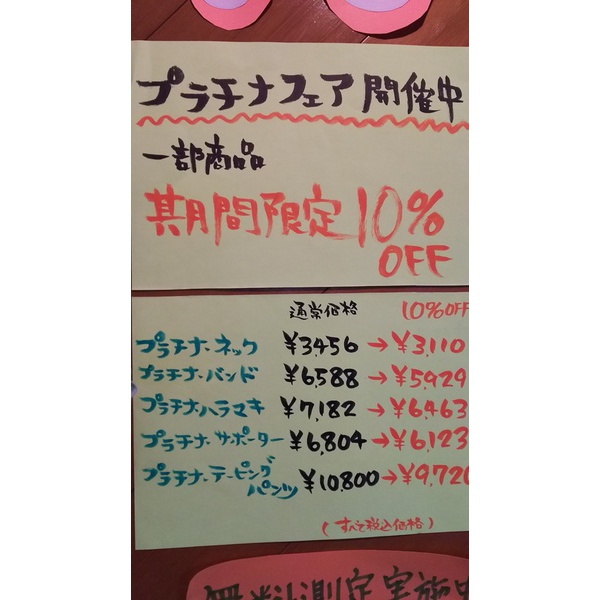 プラチナフェア開催中
一部商品
期間限定10%
OFF
通常価格 10%OFF
プラチナ・ネック ¥3,456→¥3,110
プラチナ・バンド ¥6,588→¥5929
プラチナ・ハラマキ ¥7,182→¥6,463
プラチナ・サポーター ¥6,804→¥6,123
プラチナ・テーピング
パンツ ¥10,800→¥9,720
(すべて税込価格)
無料測定実施中